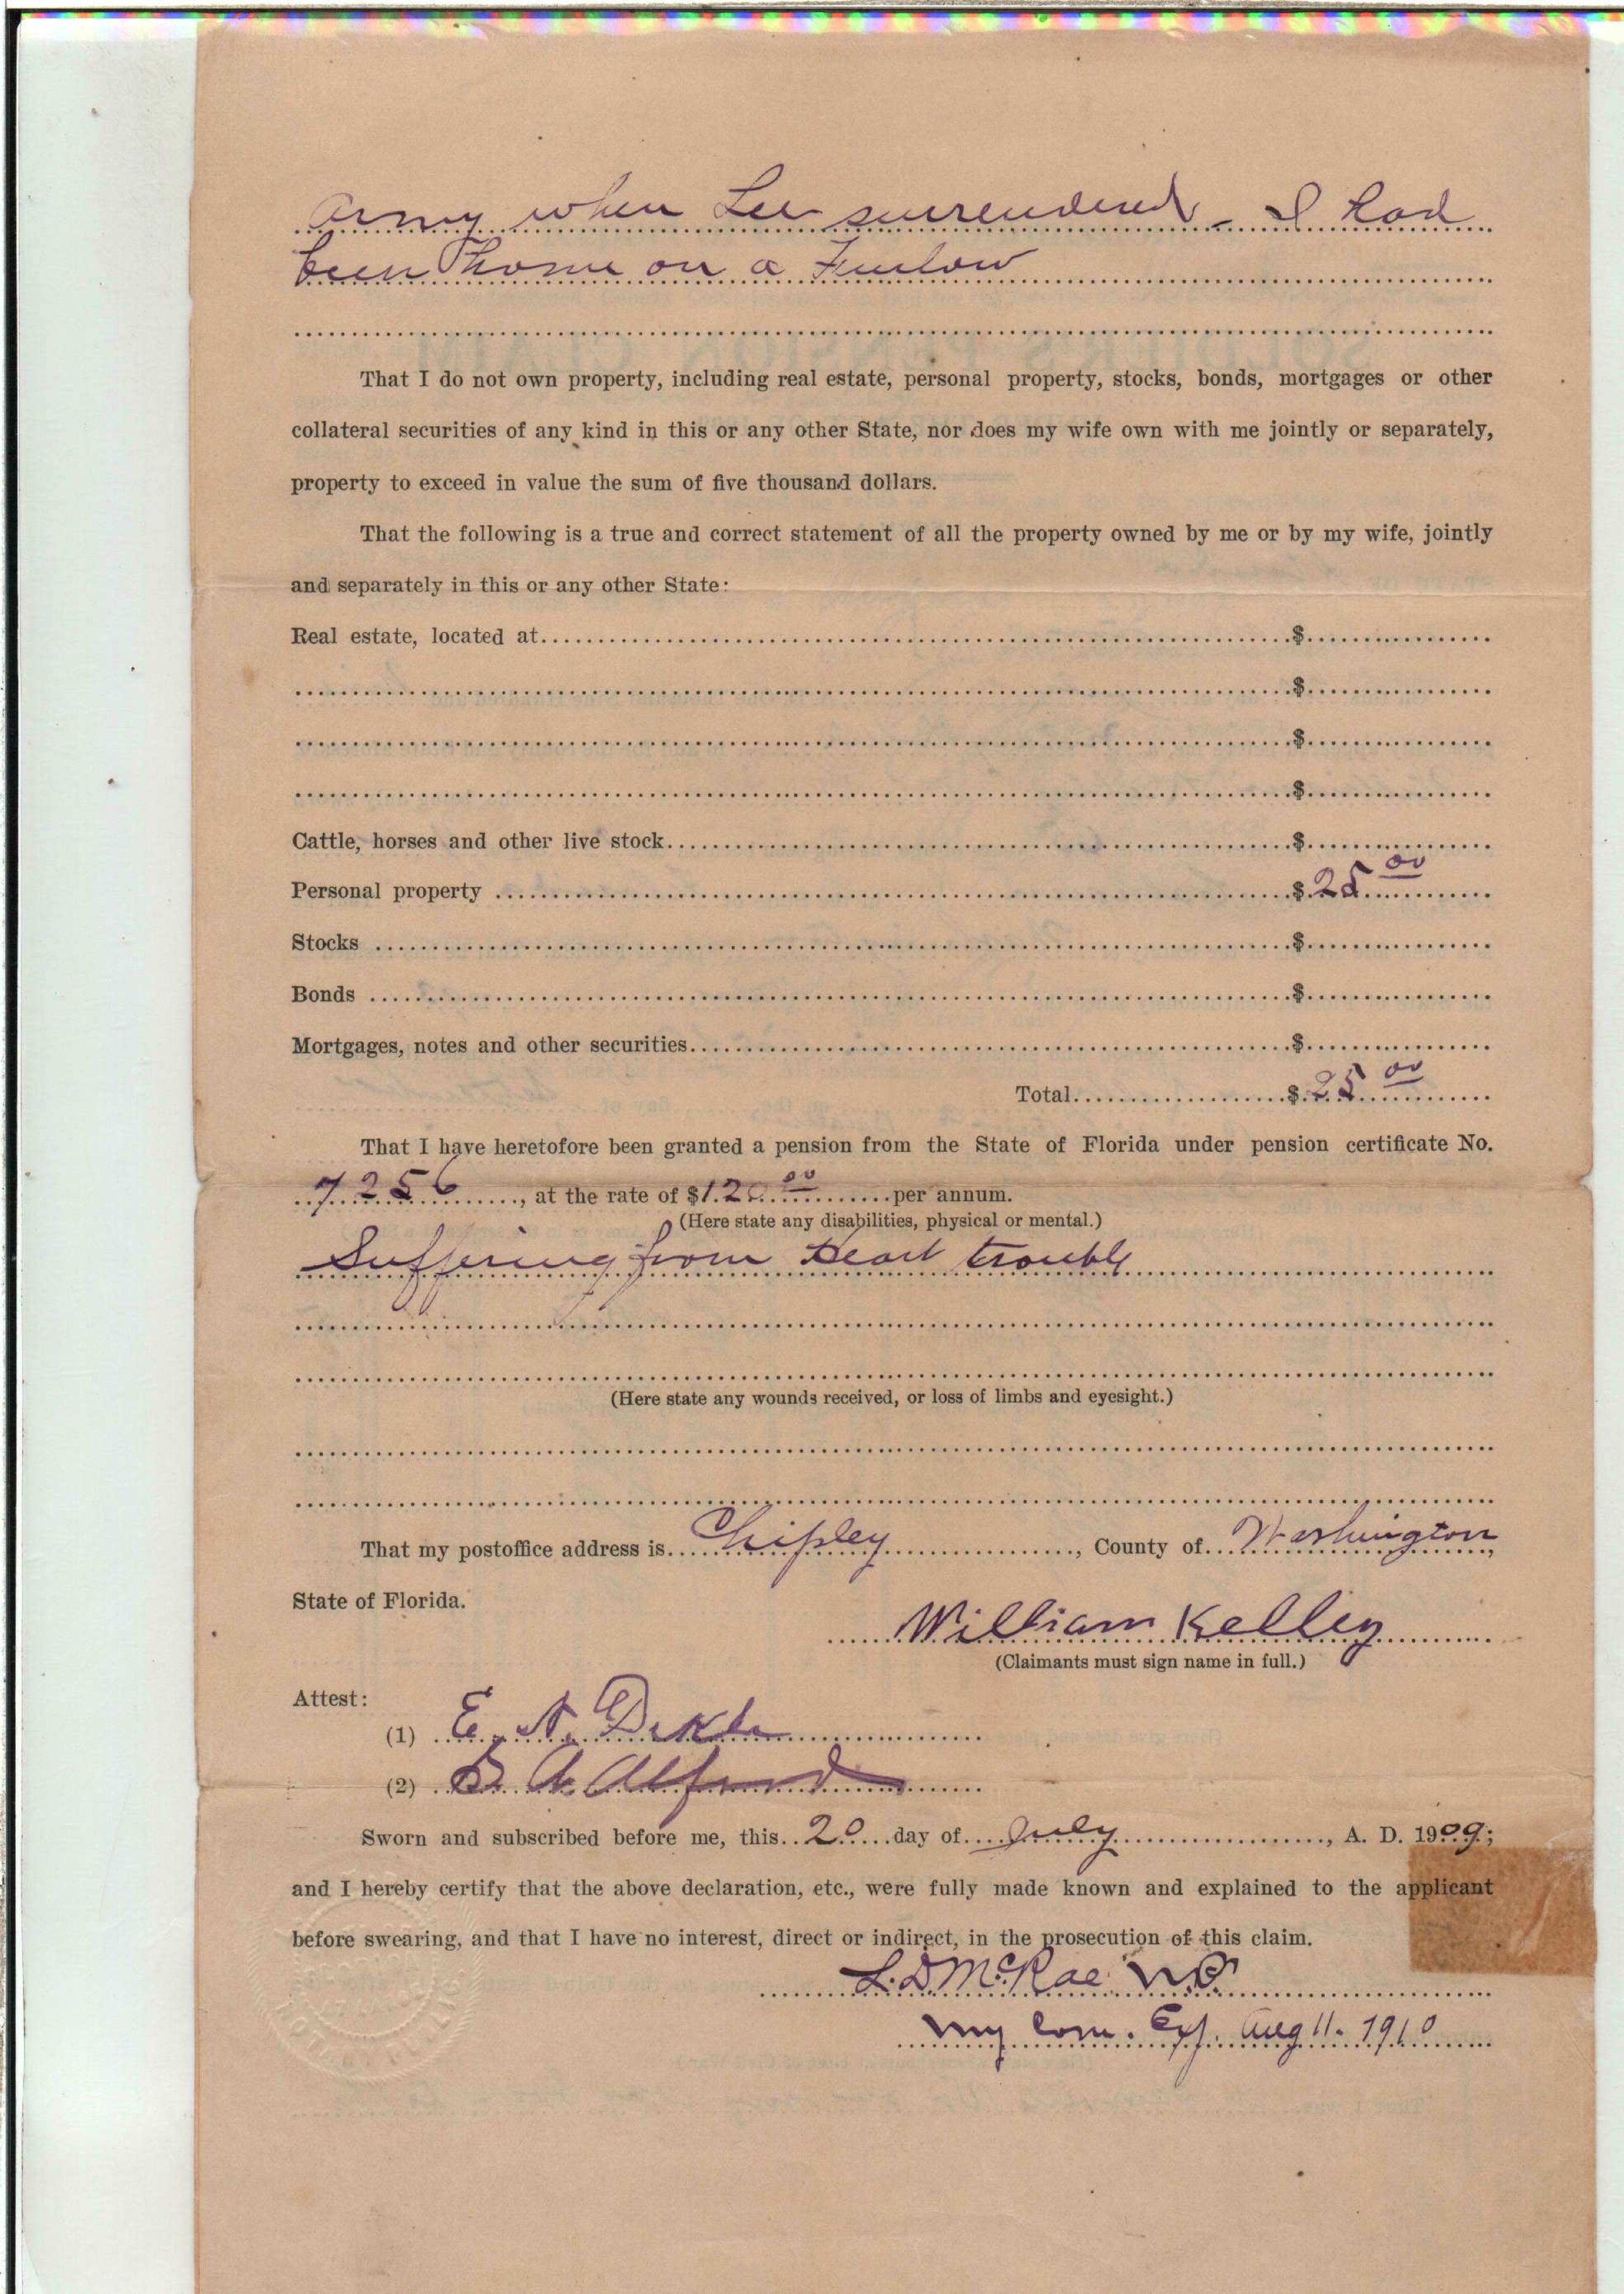 Army when Lee surrendered - I had
been home on a Furlow
That I do not own property, including real estate, personal property, stocks, bonds, mortgages or other
collateral securities of any kind in this or any other State, nor does my wife own with me jointly or separately,
property to exceed in value the sum of five thousand dollars.
That the following is a true and correct statement of all the property owned by me or by my wife, jointly
and separately in this or any other State:
Real estate, located at $
$
$
$
Cattle, horses and other live stock $
Personal property $ 25 00
Stocks $
Bonds $
Mortgages, notes and other securities $
Total $ 25 00
That I have heretofore been granted a pension from the State of Florida under pension certificate No.
7256, at the rate of $120 00 per annum.
(Here state any disabilities, physical or mental.)
Suffering from Heart trouble
(Here state any wounds received, or loss of limbs and eyesight.)
That my postoffice address is Chipley, County of Washington,
State of Florida.
William Kelley
(Claimants must sign name in full.)
Attest:
(1) E. N. Dekle
(2) A Alford
Sworn and subscribed before me, this 20 day of July, A. D. 1909;
and I hereby certify that the above declaration, etc., were fully made known and explained to the applicant
before swearing, and that I have no interest, direct or indirect, in the prosecution of this claim.
L. D. McRae N.P.
My Com. Exp. Aug 11. 1910